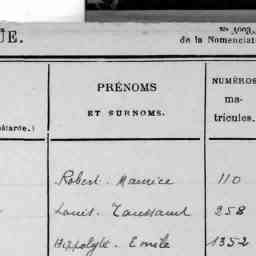 UE.
No 1003.
de la Nomenclat
PRÉNOMS
ET SURNOMS.
NUMÉROS
ma-
tricules.
Robert. Maurice 110
Louis. Toussaint 258
Hippolyte. Emile 1352